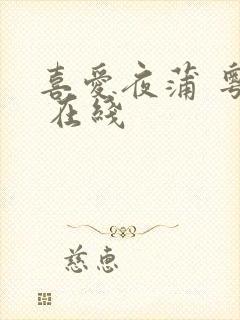 喜愛夜蒲 粵
在綫
慈惠